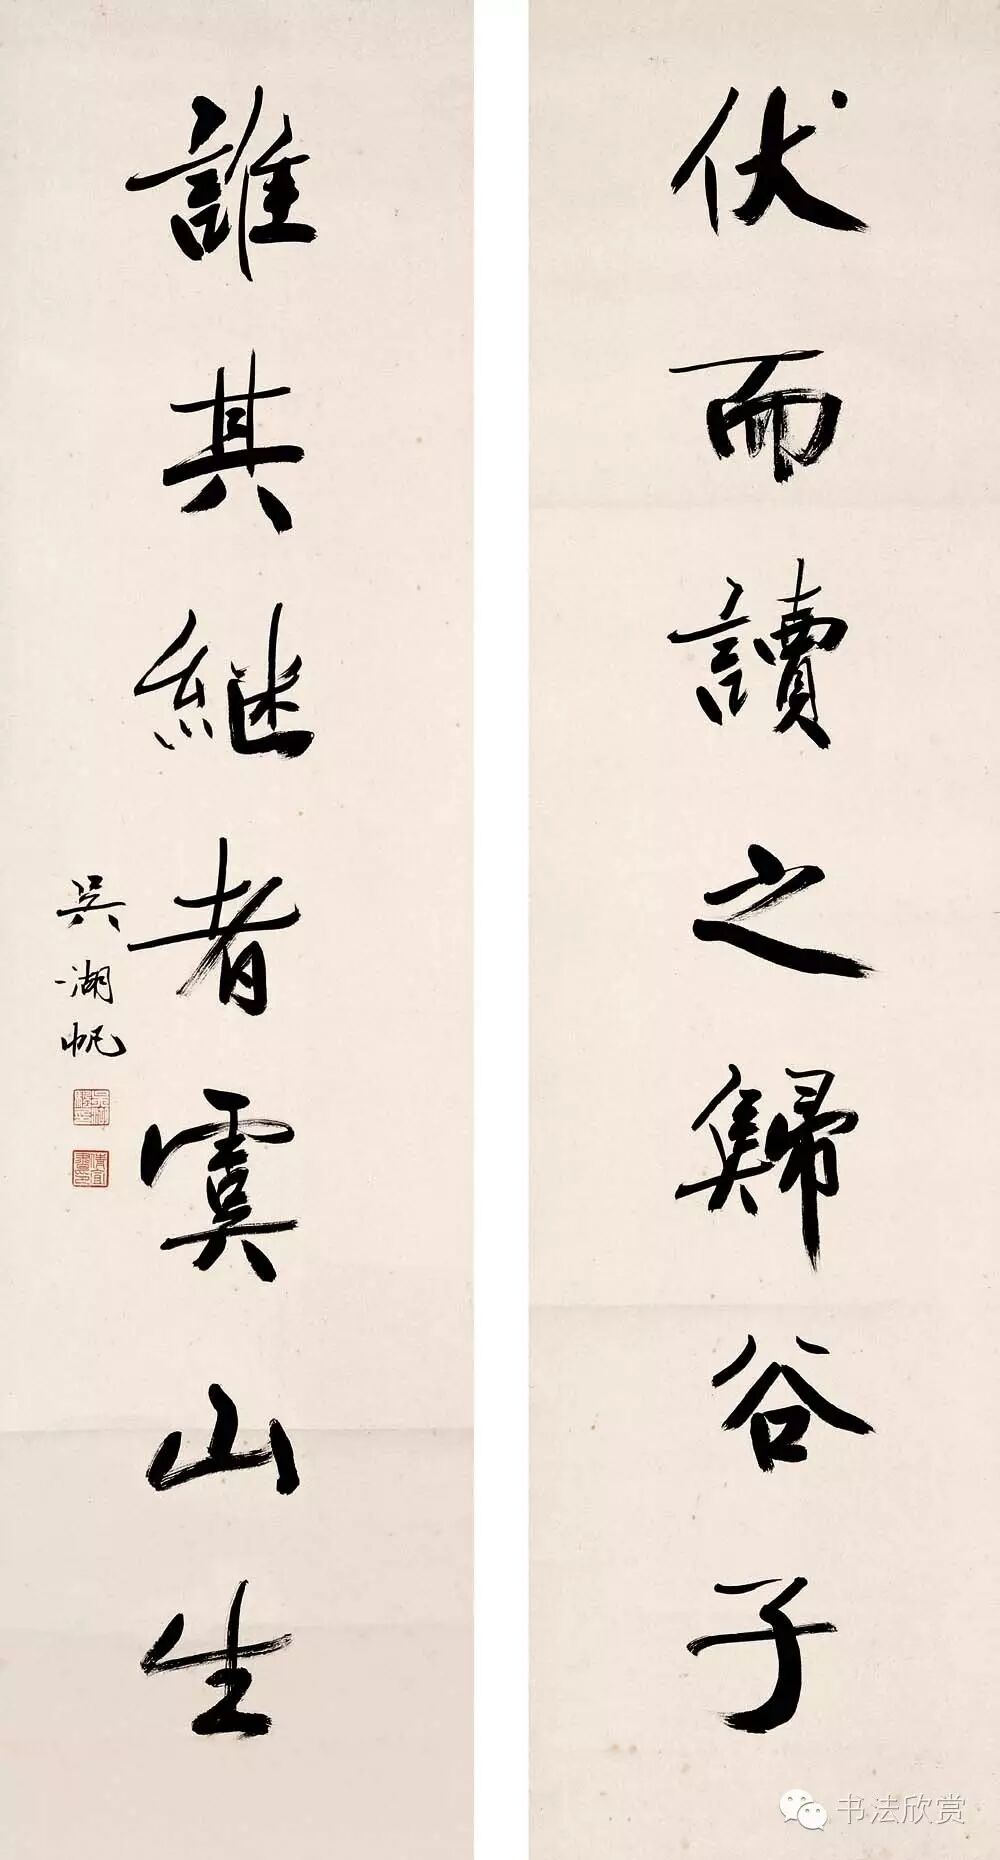 伏而讀之歸谷子
誰其継者虞山生
吴湖帆
书法欣赏